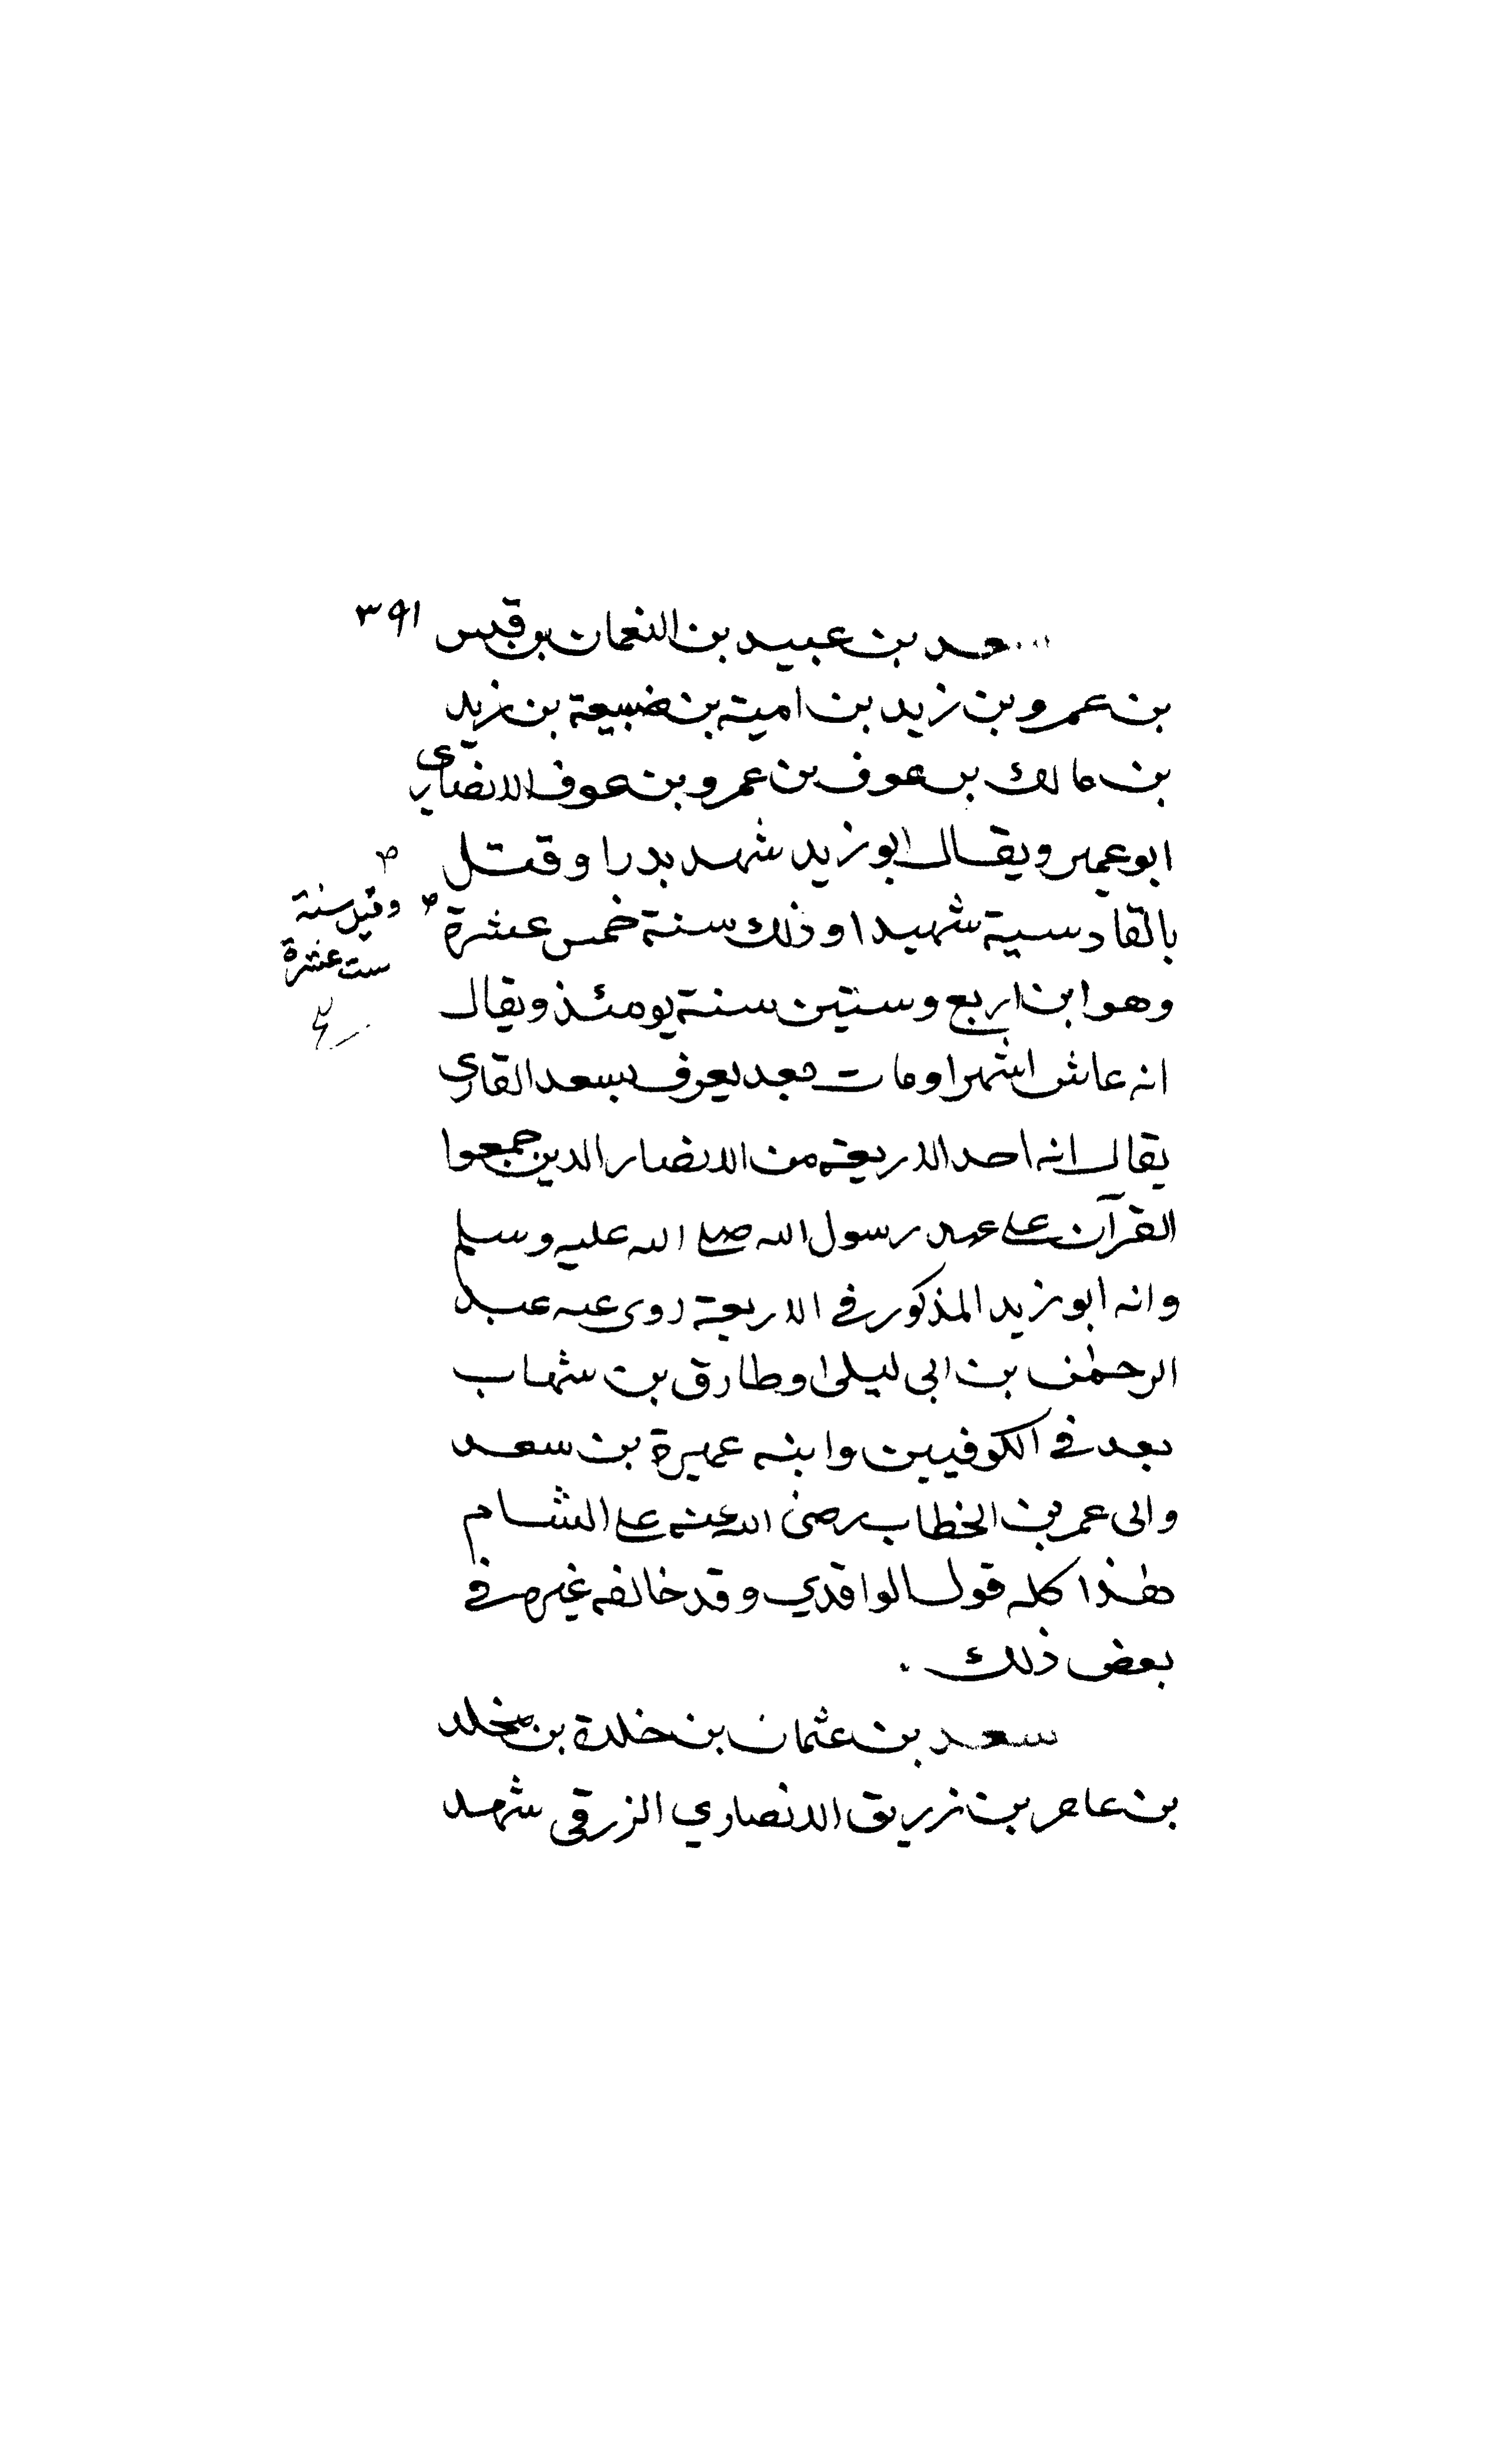 ٣٩١
سعد بن عبيد بن النعمان بن قيس
بن عمرو بن زيد بن امية بن ضبيعة بن زيد
بن مالك بن عوف بن عمرو بن عوف الانصارى
ابو عمير ويقال ابو زيد شهد بدرا وقتل
بالقادسية شهيدا وذلك سنة خمس عشرة
وقيل سنة
ست عشرة
وهو ابن اربع وستين سنة يومئذ ويقال
انه عاش اشهرا ومات بعد يعرف بسعد القارى
يقال انه احد الاربعة من الانصار الذين جمعوا
القرآن على عهد رسول الله صلى الله عليه وسلم
وانه ابو زيد المذكور في الاربعة روى عنه عبد
الرحمٰن بن ابى ليلى وطارق بن شهاب
يعد في الكوفيين وابنه عميرة بن سعد
والى عمر بن الخطاب رضى الله عنه على الشام
هٰذا كله قول الواقدي وقد خالفه غيره في
بعض ذلك .
سعد بن عثمان بن خلدة بن مخلد
بن عامر بن زريق الانصاري الزرقى شهد